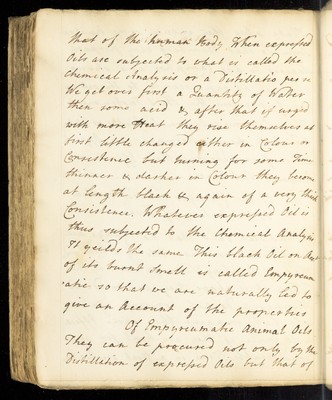 that of the human Body. When expressed
Oils are subjected to what is called the
Chemical Analysis or a Distillatio per se
We get over first a Quantity of Water
then some acid & after that if urged
with more Heat they rise themselves at
first little changed either in Colour or
Consistence but turning for some time
thinner & darker in Colour they become
at length black & again of a very thick
Consistence. Whatever expressed Oil is
thus subjected to the Chemical Analysis
It yeilds the same This black Oil on Acct
of its burnt Smell is called Empyreum
atic so that we are naturally led to
give an Account of the properties
Of Empyreumatic Animal Oils
They can be procured not only by the
Distillation of expressed Oils but that of